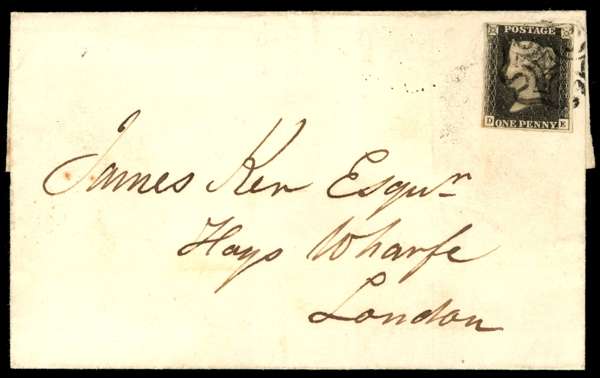 POSTAGE
D ONE PENNY E
James Ker Esqur
Hays Wharfe
London